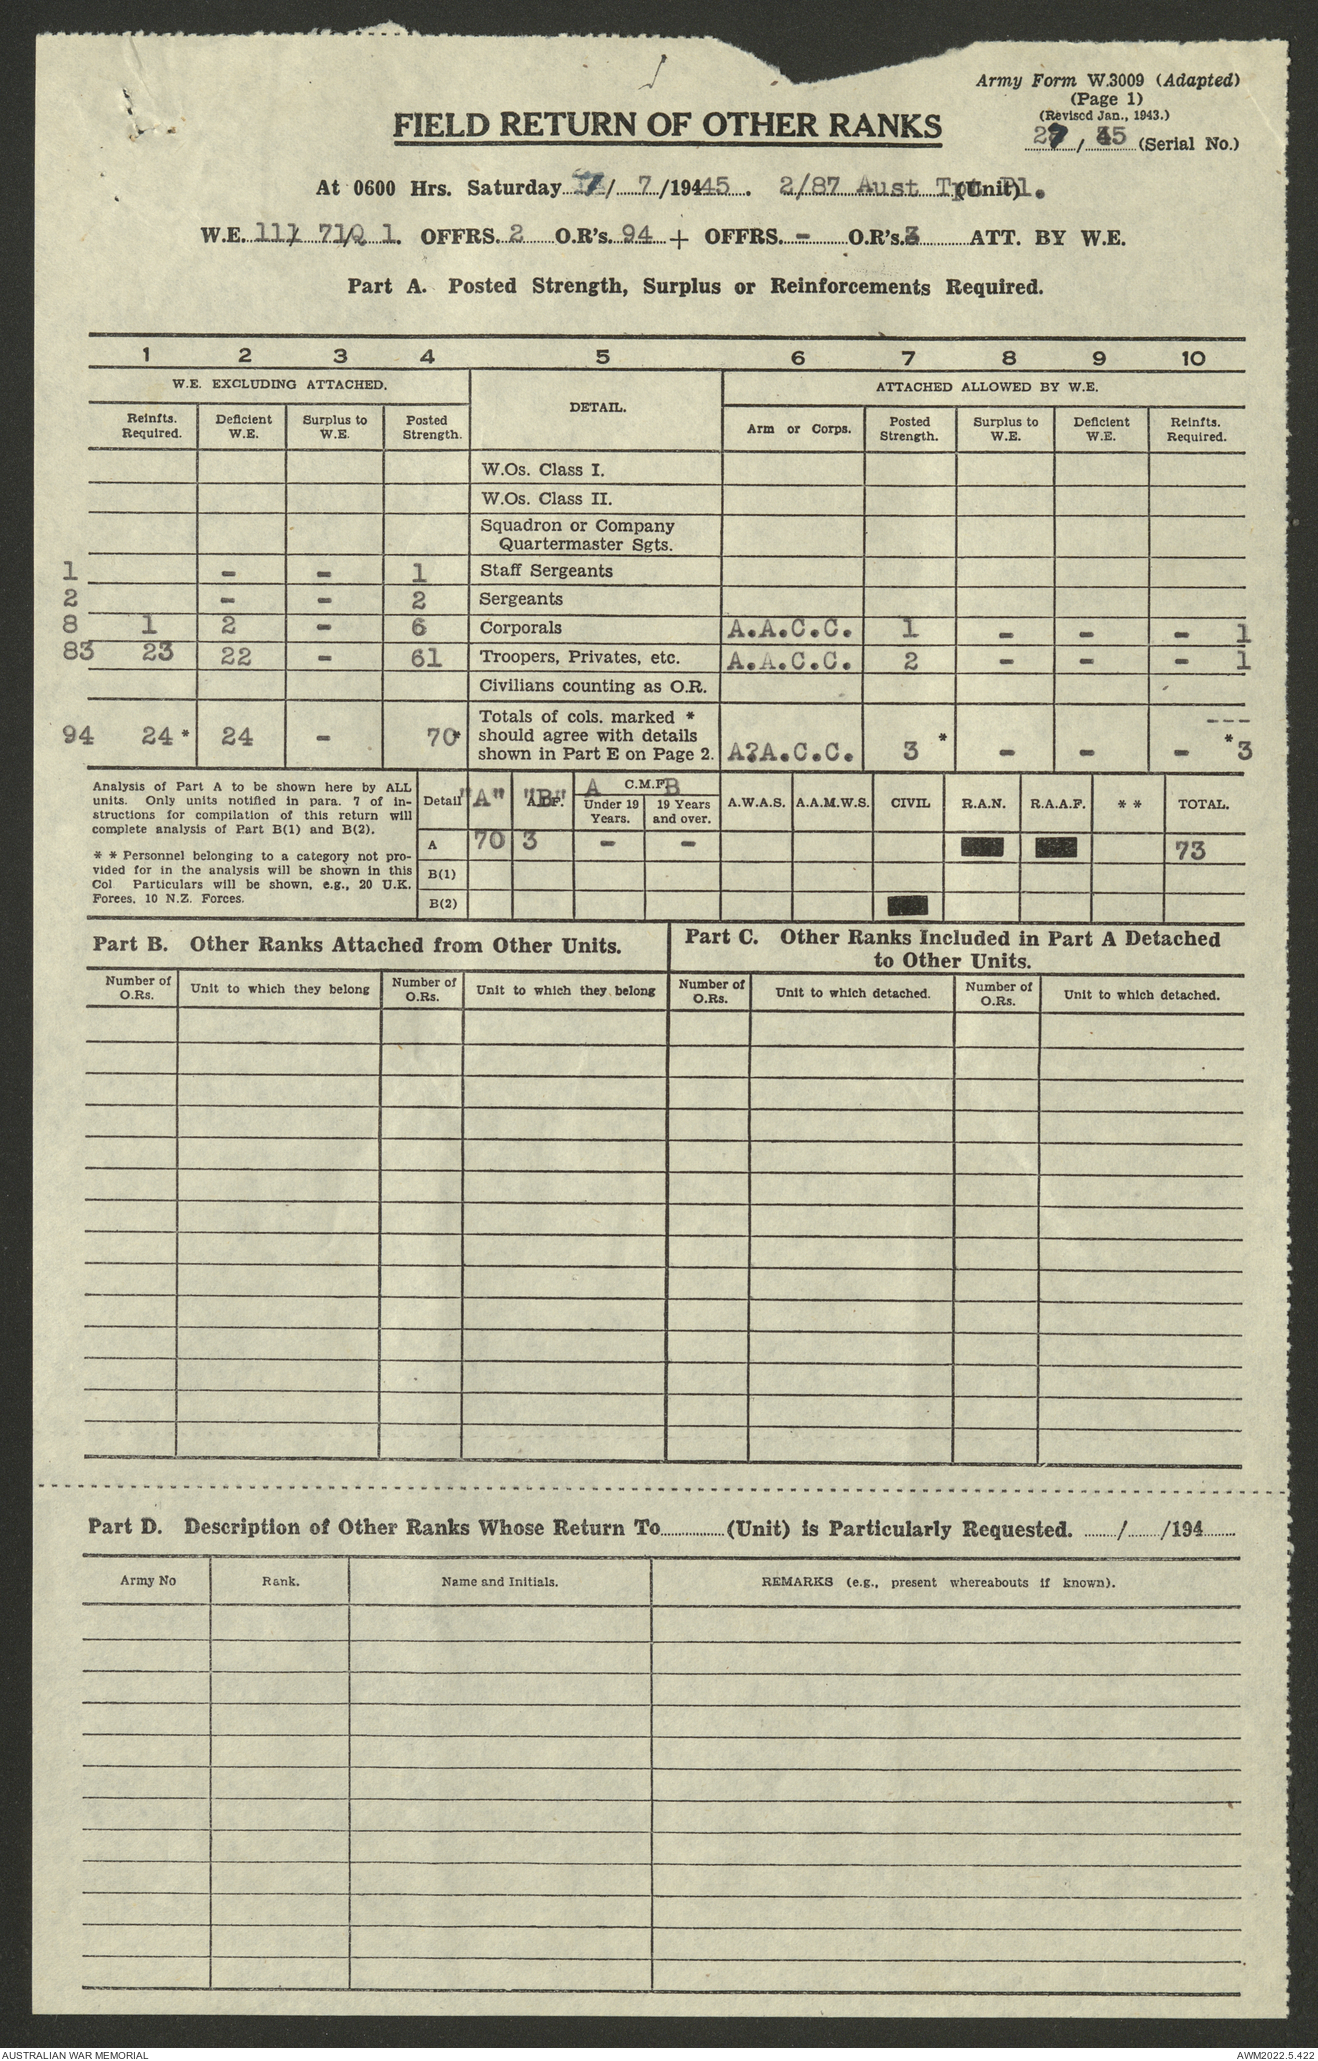 Army Form W.3009 (Adapted)
(Page 1)
(Revised Jan., 1943.)
27 / 45 (Serial No.)
FIELD RETURN OF OTHER RANKS
At 0600 Hrs. Saturday / 7 /19445. 2/87 Aust Tpt Pl. (Unit)
W.E. 111/ 71/Q 1. OFFRS. 2 O.R's. 94 + OFFRS. - O.R's. 3 ATT. BY W.E.
Part A. Posted Strength, Surplus or Reinforcements Required.
1 2 3 4 5 6 7 8 9 10
W.E. EXCLUDING ATTACHED. DETAIL. ATTACHED ALLOWED BY W.E.
Reinfts. Required. Deficient W.E. Surplus to W.E. Posted Strength. Arm or Corps. Posted Strength. Surplus to W.E. Deficient W.E. Reinfts. Required.
W.Os. Class I.
W.Os. Class II.
Squadron or Company
Quartermaster Sgts.
1 - - 1 Staff Sergeants
2 - - 2 Sergeants
8 1 2 - 6 Corporals A.A.C.C. 1 - - - 1
83 23 22 - 61 Troopers, Privates, etc. A.A.C.C. 2 - - - 1
Civilians counting as O.R.
Totals of cols. marked * ---
94 24 * 24 - 70* should agree with details
shown in Part E on Page 2. A?A.C.C. 3 * - - - *3
Analysis of Part A to be shown here by ALL
units. Only units notified in para. 7 of in-
structions for compilation of this return will
complete analysis of Part B(1) and B(2).
* * Personnel belonging to a category not pro-
vided for in the analysis will be shown in this
Col Particulars will be shown, e.g., 20 U.K.
Forces, 10 N.Z. Forces.
Detail "A" "B" A.I.F. A C.M.F. B A.W.A.S. A.A.M.W.S. CIVIL R.A.N. R.A.A.F. * * TOTAL.
Under 19 Years. 19 Years and over.
A 70 3 - - 73
B(1)
B(2)
Part B. Other Ranks Attached from Other Units.
Part C. Other Ranks Included in Part A Detached
to Other Units.
Number of O.Rs. Unit to which they belong Number of O.Rs. Unit to which they belong Number of O.Rs. Unit to which detached. Number of O.Rs. Unit to which detached.
Part D. Description of Other Ranks Whose Return To............(Unit) is Particularly Requested. ....../....../194......
Army No Rank. Name and Initials. REMARKS (e.g., present whereabouts if known).
AUSTRALIAN WAR MEMORIAL
AWM2022.5.422